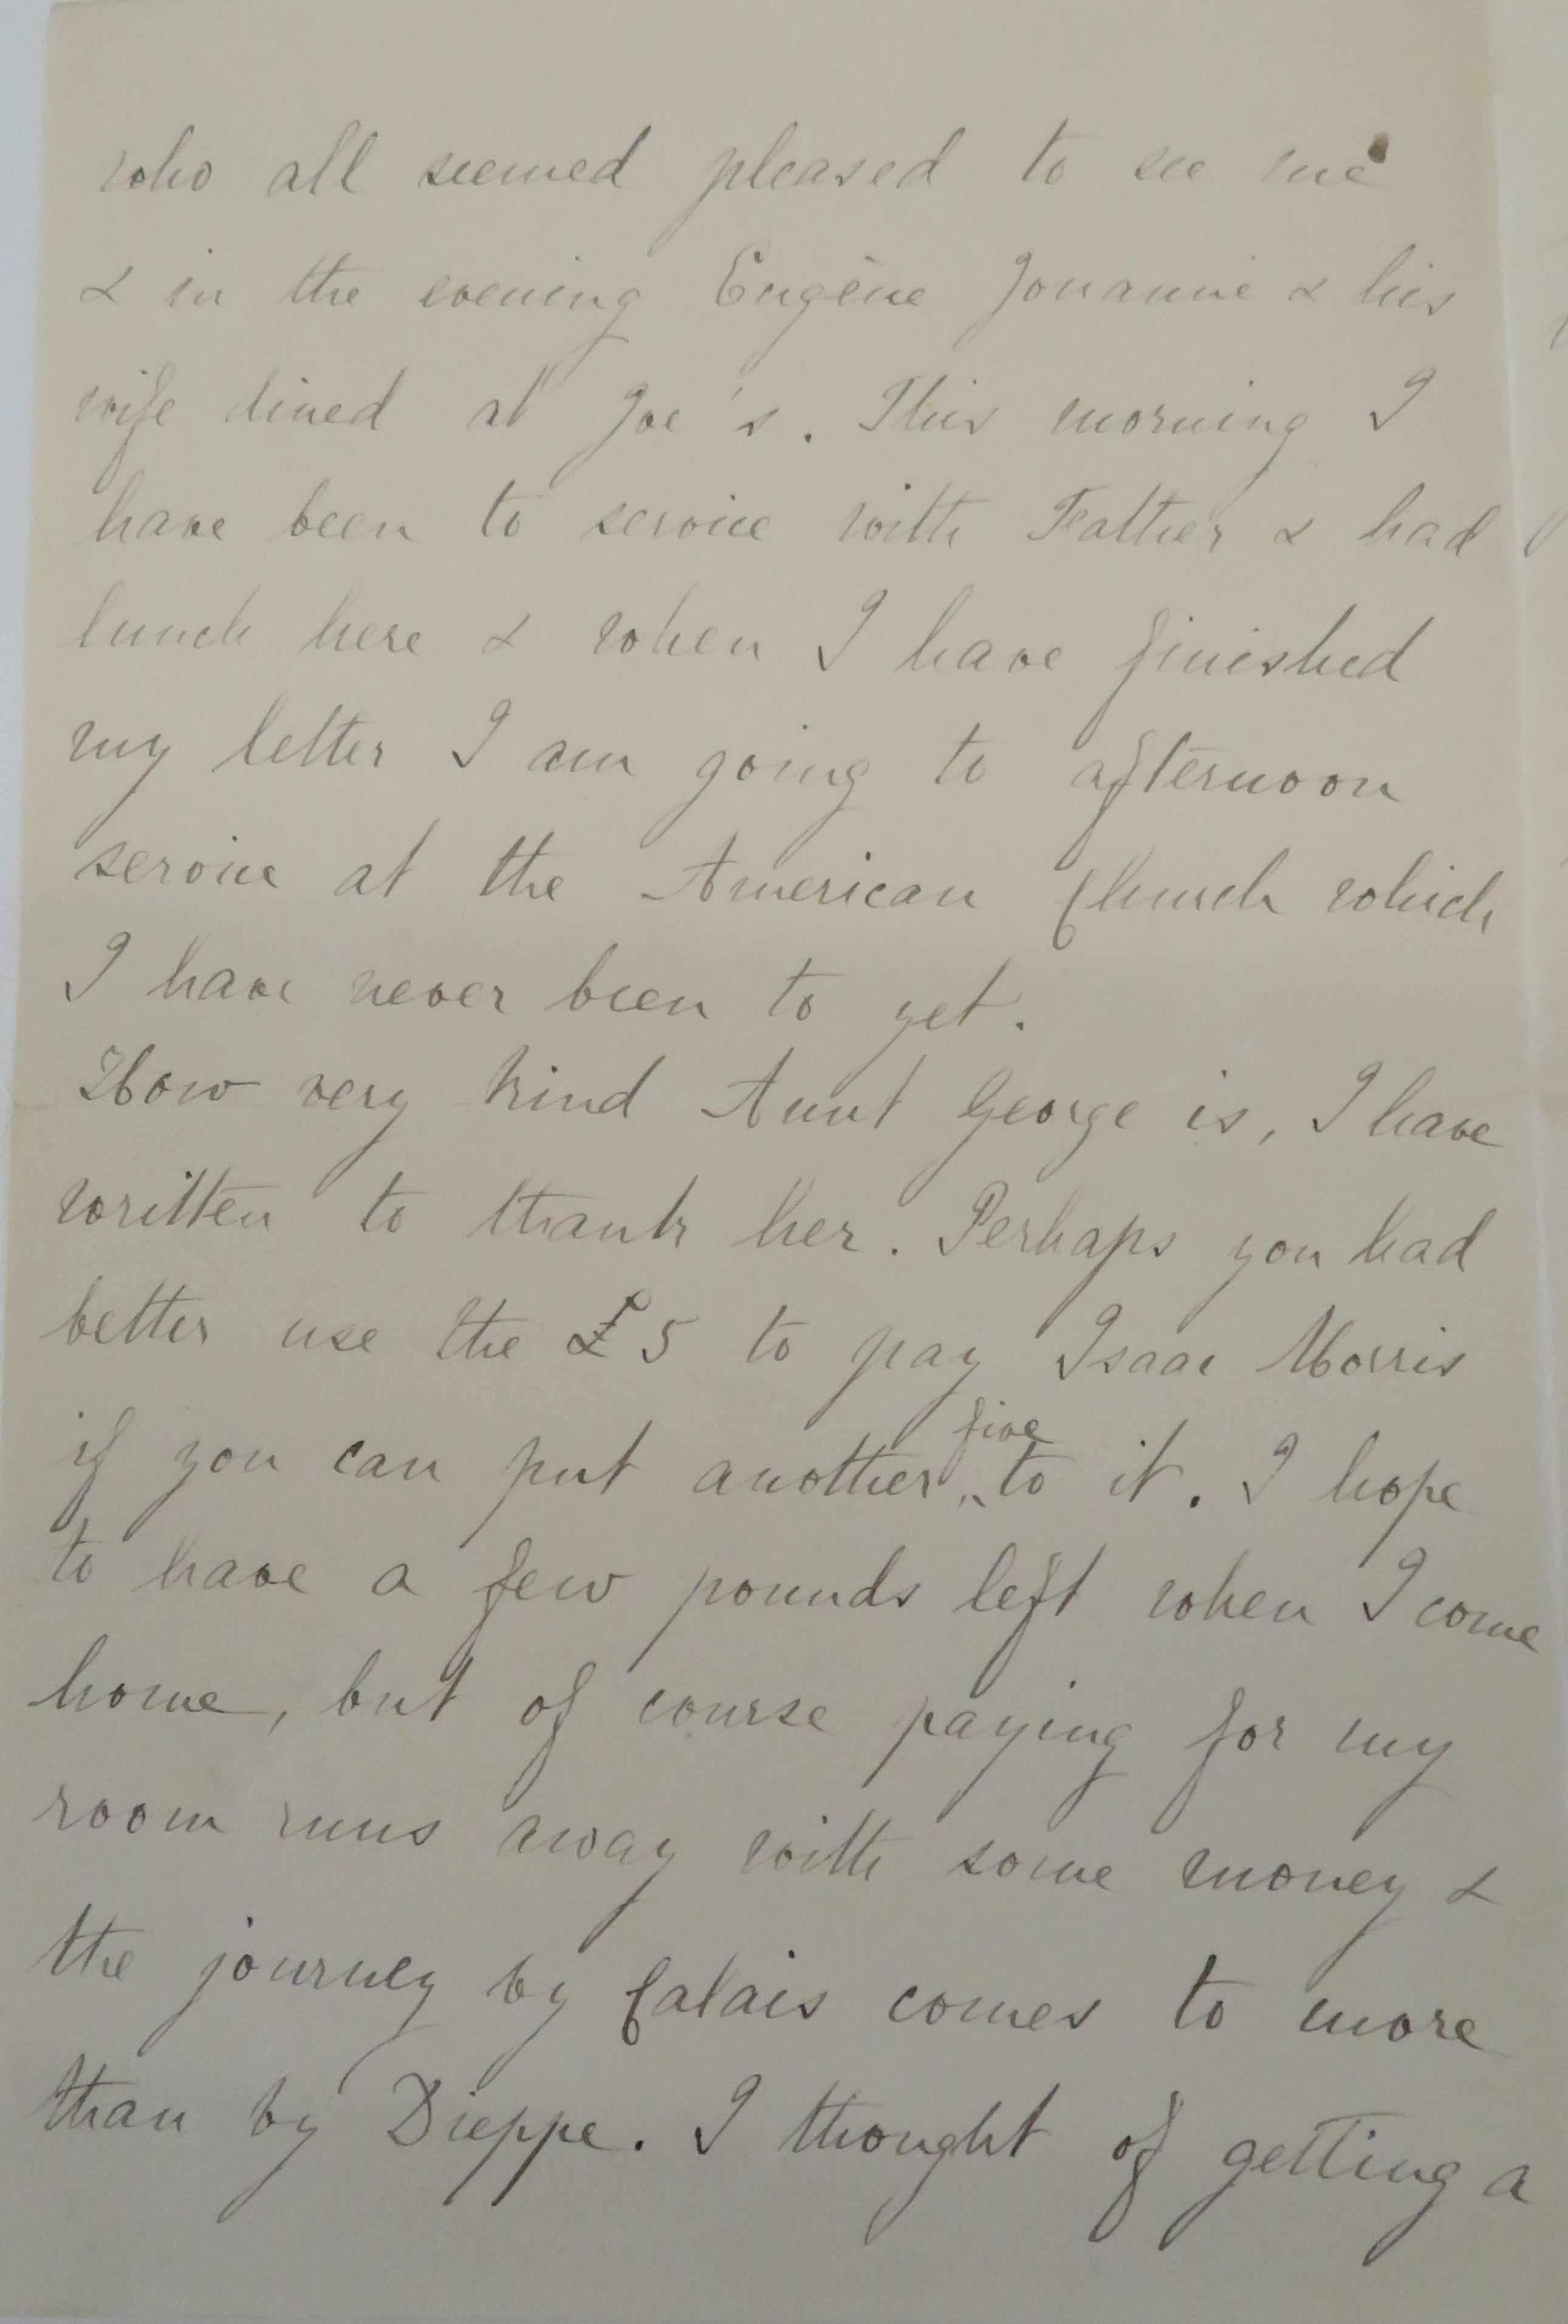 who all seemed pleased to see me
& in the evening Eugène Jouanne & his
wife dined at Joe's. This morning I
have been to service with Father & had
lunch here & when I have finished
my letter I am going to afternoon
service at the American Church which
I have never been to yet.
How very kind Aunt George is, I have
written to thank her. Perhaps you had
better use the £5 to pay Isaac Morris
if you can put another five to it. I hope
to have a few pounds left when I come
home, but of course paying for my
room runs away with some money &
the journey by Calais comes to more
than by Dieppe. I thought of getting a